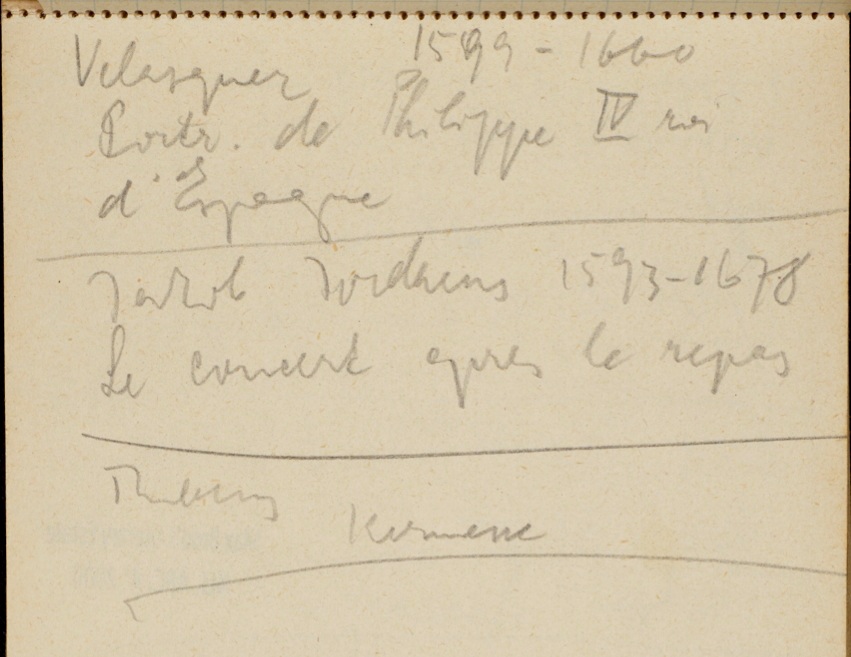 Velasquez 1599-1660
Portr. de Philippe IV roi
d'Espagne
Jakob Jordaens 1593-1678
Le concert apres le repas
Kermesse